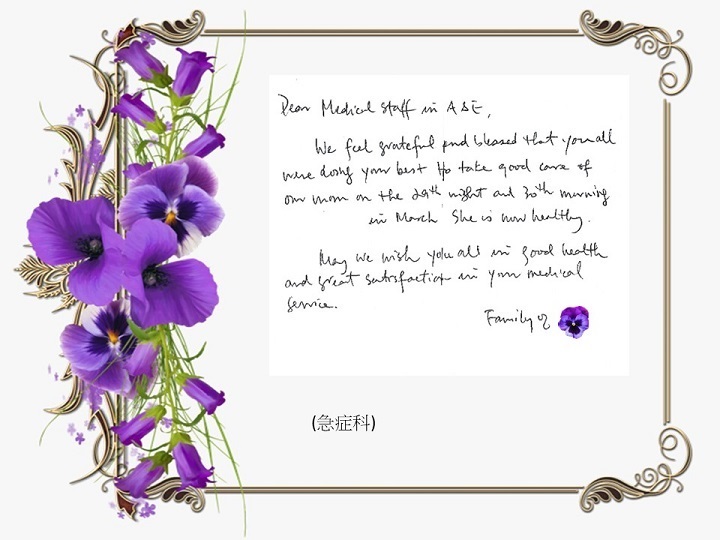 Dear Medical staff in A&E,
We feel grateful and blessed that you all
were doing your best to take good care of
our mom on the 29th night and 30th morning
in March. She is now healthy.
May we wish you all in good health
and great satisfaction in your medical
service.
Family of
(急症科)